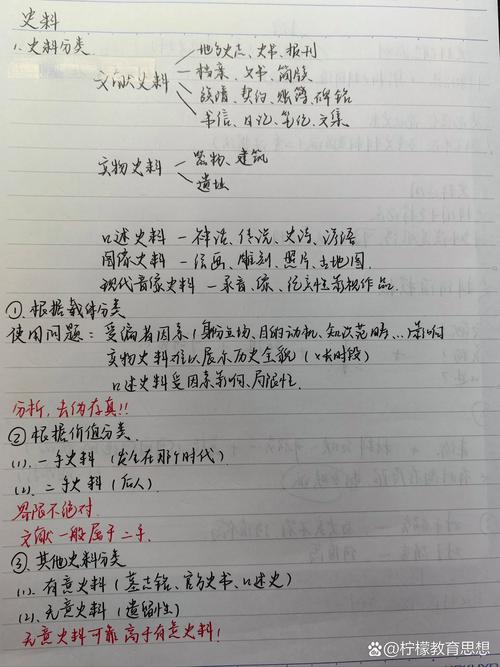 史料
1. 史料分类
文献史料
地方史志、史书、报刊
档案、文书、简牍
族谱、契约、账簿、碑铭
书信、日记、笔记、文集
实物史料
器物、建筑
遗址
口述史料 — 神话、传说、史诗、谚语
图像史料 — 绘画、雕刻、照片、古地图
现代音像史料 — 录音、像、纪实性影视作品
① 根据载体分类
使用问题：受编者因素（身份立场、目的动机、知识范畴…）影响
实物史料难以展示历史全貌（长时段）
口述史料受因素影响、局限性
分析，去伪存真!!
② 根据价值分类
(1). 一手史料（发生在那个时代）
(2). 二手史料（后人）
界限不绝对
文献一般属于二手.
③ 其他史料分类
(1). 有意史料（墓志铭、官方史书、口述史）
(2). 无意史料（遗留性）
无意史料可靠高于有意史料!
@柠檬教育思想